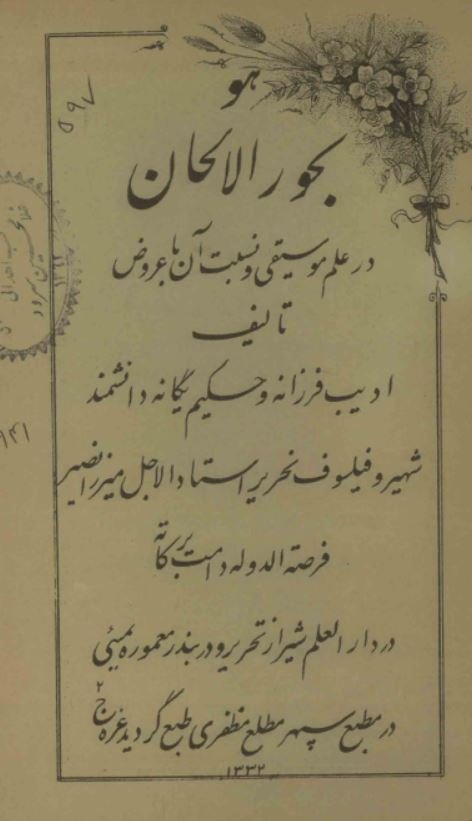 هو
۵۹۷
بحور الالحان
در علم موسیقی و نسبت آن با عروض
تالیف
ادیب فرزانه و حکیم یگانه دانشمند
شهیر و فیلسوف نحریر استاد الاجل میرزا نصیر
فرصة الدوله دامت برکاته
در دار العلم شیراز تحریر و در بندر معموره بمبئی
در مطبع سپهر مطلع مظفری طبع گردید غره ج ۲
۱۳۳۲